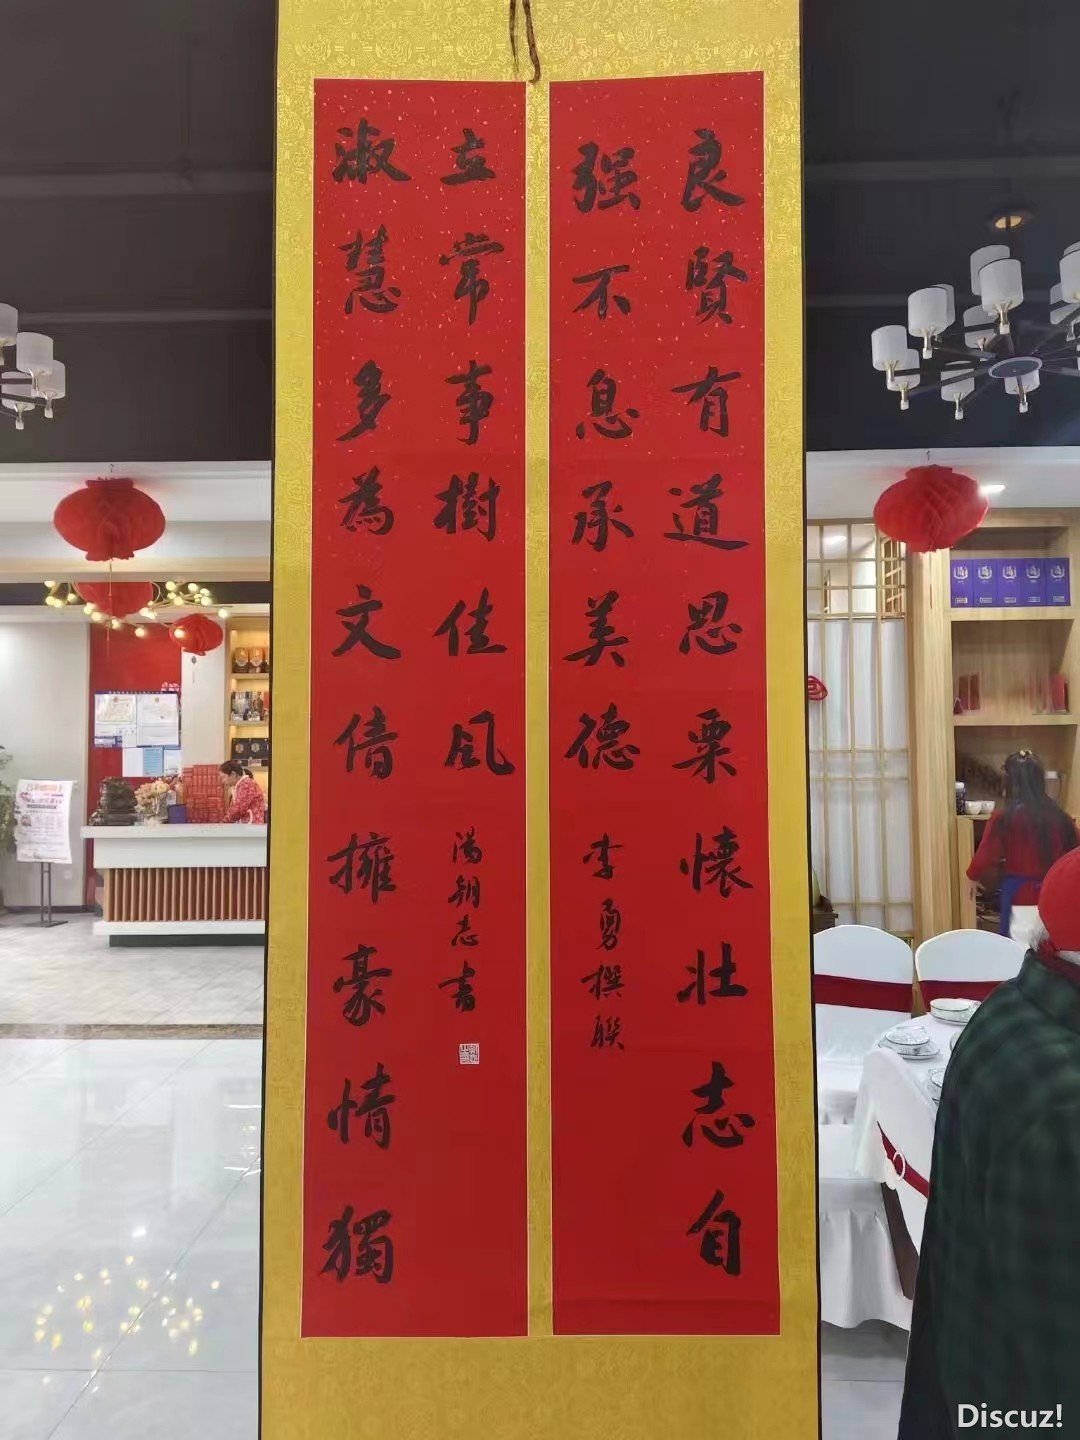 良賢有道思栗懷壯志自
强不息承美德
李勇撰聯
淑慧多為文倩擁豪情獨
立常事樹佳風
湯朝志書
Discuz!